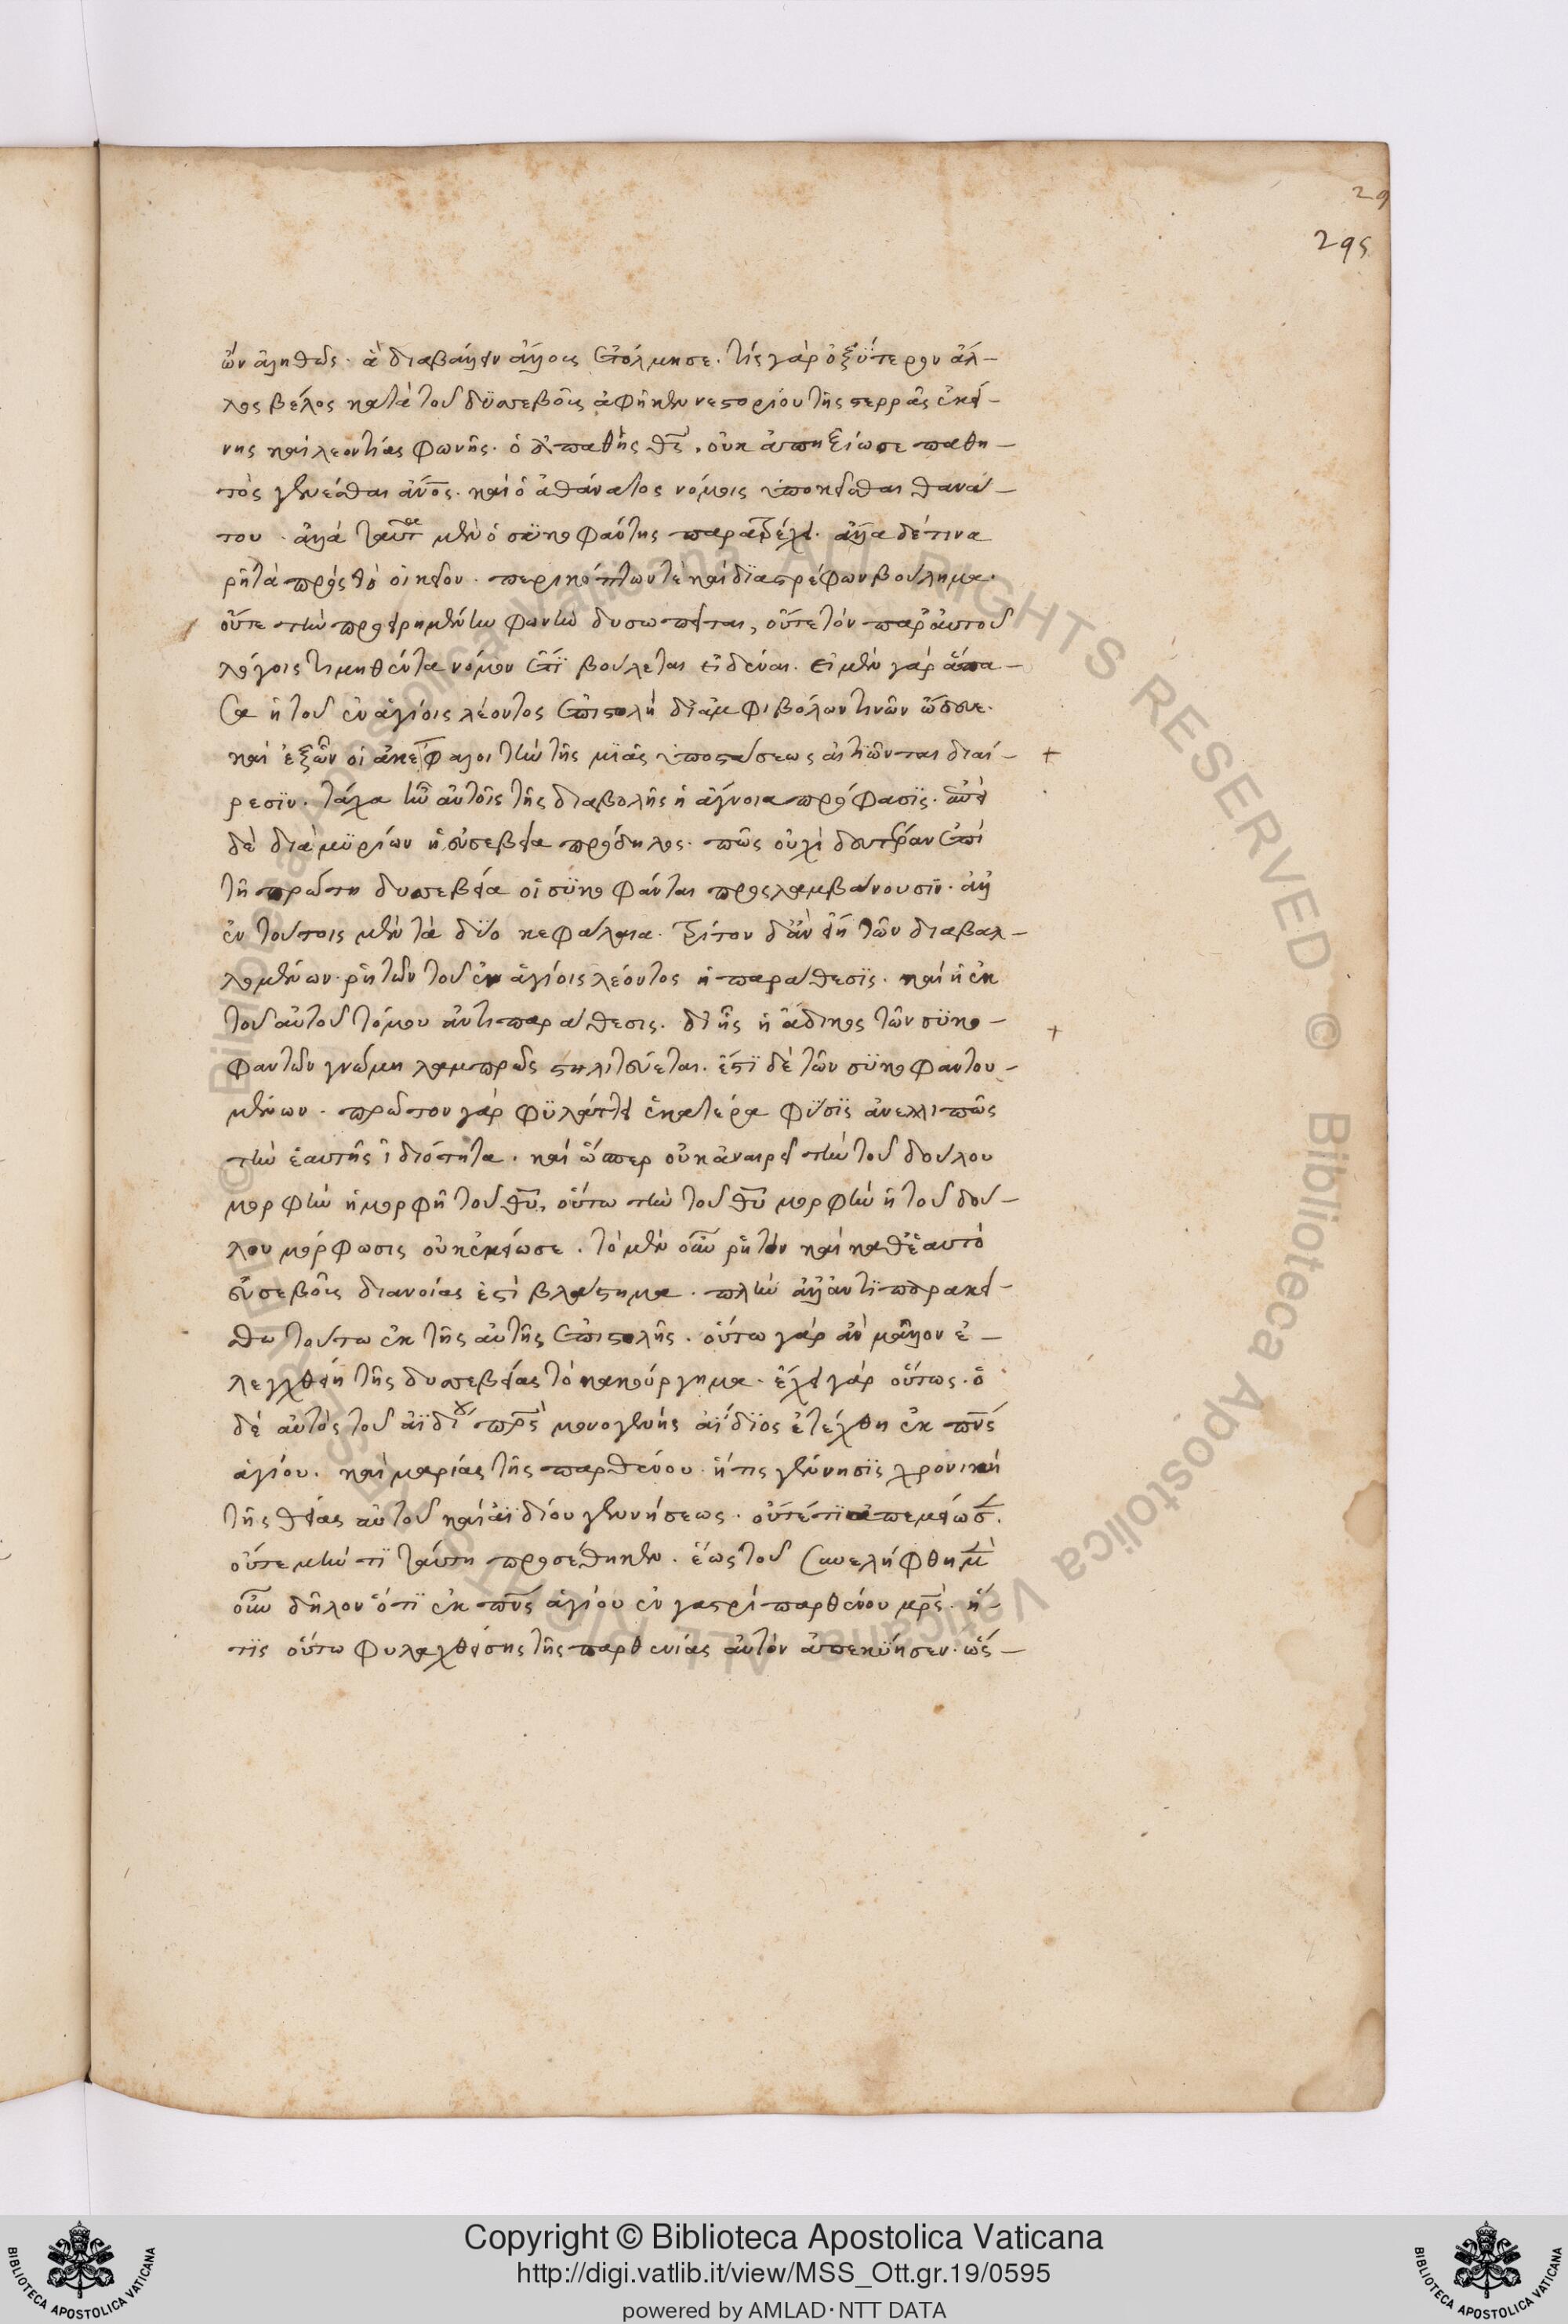 29
295
ὧν ἀληθῶς. ἃ διαβάλλειν ἄλλους ἐτόλμησε. τίς γὰρ ὀξΰτερον ἄλ-
λος βέλος κατὰ τοῦ δϋσσεβοῦς ἀφῆκεν νεστορίου τῆς στερρᾶς ἐκεί-
νης καὶ λεοντίας φωνῆς. ὁ ἀπαθὴς θς̅, οὐκ ἀπηξίωσε παθη-
τὸς γενέσθαι ἄνος̅. καὶ ὁ ἀθάνατος νόμοις ὑποκεῖσθαι θανά-
του. ἀλλὰ ταῦτα μὲν ὁ συκοφάντης παρατρέχει. ἄλλα δέ τινα
ῥητὰ πρὸς τὸ οἰκεῖον. περικόπτων τὲ καὶ διαστρέφων βούλημα.
οὔτε τὴν προειρημένην φωνὴν δυσωπεῖται, οὔτε τὸν παρ᾽ αὐτοῦ
λόγοις τιμηθέντα νόμον ἔτϊ βούλεται εἰδέναι. εἰ μὲν γὰρ ἅπα-
σα ἡ τοῦ ἐν ἁγίοις λέοντος ἐπιστολὴ δι᾽ ἀμφιβόλων τινῶν ὥδευε.
καὶ ἐξ ὧν οἱ ἀκέφαλοι τὴν τῆς μϊᾶς ὑποστάσεως αἰτιῶνται διαί-
ρεσϊν. τάχα ἦν αὐτοῖς τῆς διαβολῆς ἡ ἄγνοια πρόφασϊς. αὐτ
δὲ διὰ μϋρίων ἡ εὐσέβεια πρόδηλος. πῶς οὐχὶ δευτέραν ἐπὶ
τῇ πρώτη δυσσεβεία οἱ συκοφάνται προσλαμβάνουσϊν. ἀλλ᾽
ἐν τούτοις μὲν τὰ δΰο κεφάλαια. τρίτον δ᾽ ἂν εἴη τῶν διαβαλ-
λομένων ῥητῶν τοῦ ἐν ἁγίοις λέοντος ἡ παράθεσϊς. καὶ ἡ ἐκ
τοῦ αὐτοῦ τόμου ἀντιπαράθεσις. δι᾽ ἧς ἡ ἄδικος τῶν σϋκο-
φαντῶν γνώμη λαμπρῶς στηλιτεύεται. ἔστϊ δὲ τῶν σϋκοφαντου-
μένων. πρῶτον γὰρ φϋλάττει ἑκατέρα φΰσϊς ἀνελλιπῶς
τὴν ἑαυτῆς ἰδιότητα. καὶ ὥσπερ οὐκ ἀναιρεῖ τὴν τοῦ δούλου
μορφὴν ἡ μορφὴ τοῦ θυ̅, οὕτω τὴν τοῦ θυ̅ μορφὴν ἡ τοῦ δού-
λου μόρφωσις οὐκ ἐμείωσε. τὸ μὲν οὖν ῥητὸν καὶ καθ᾽ ἑαυτὸ
εὐσεβοῦς διανοίας ἐστὶ βλάστημα. πλὴν ἀλλ᾽ ἀντϊπαρακεί-
σθω τούτω ἐκ τῆς αὐτῆς ἐπιστολῆς. οὕτω γὰρ ἂν μᾶλλον ἐ-
λεγχθείη τῆς δυσσεβείας τὸ κακούργημα. ἔχει γὰρ οὕτως. ὁ
δὲ αὐτὸς τοῦ ἀϊδίου πρς̅ μονογενὴς ἀΐδϊος ἐτέχθη ἐκ πνς̅
ἁγίου. καὶ μαρίας τῆς παρθένου. ἥτις γέννησϊς χρονικὴ
τῆς θείας αὐτοῦ καὶ ἀϊδίου γεννήσεως. οὔτέ τϊ ἀπεμείωσεν.
οὔτε μὴν τϊ ταύτη προσέθηκεν. ἕως τοῦ συνελήφθη μὲν
οὖν δῆλον ὅτϊ ἐκ πνς̅ ἁγίου ἐν γαστρὶ παρθένου μρς̅. ἥ-
τϊς οὕτω φυλαχθείσης τῆς παρθενίας αὐτὸν ἀπεκΰησεν. ὥσ-
Copyright © Biblioteca Apostolica Vaticana
http://digi.vatlib.it/view/MSS_Ott.gr.19/0595
powered by AMLAD·NTT DATA